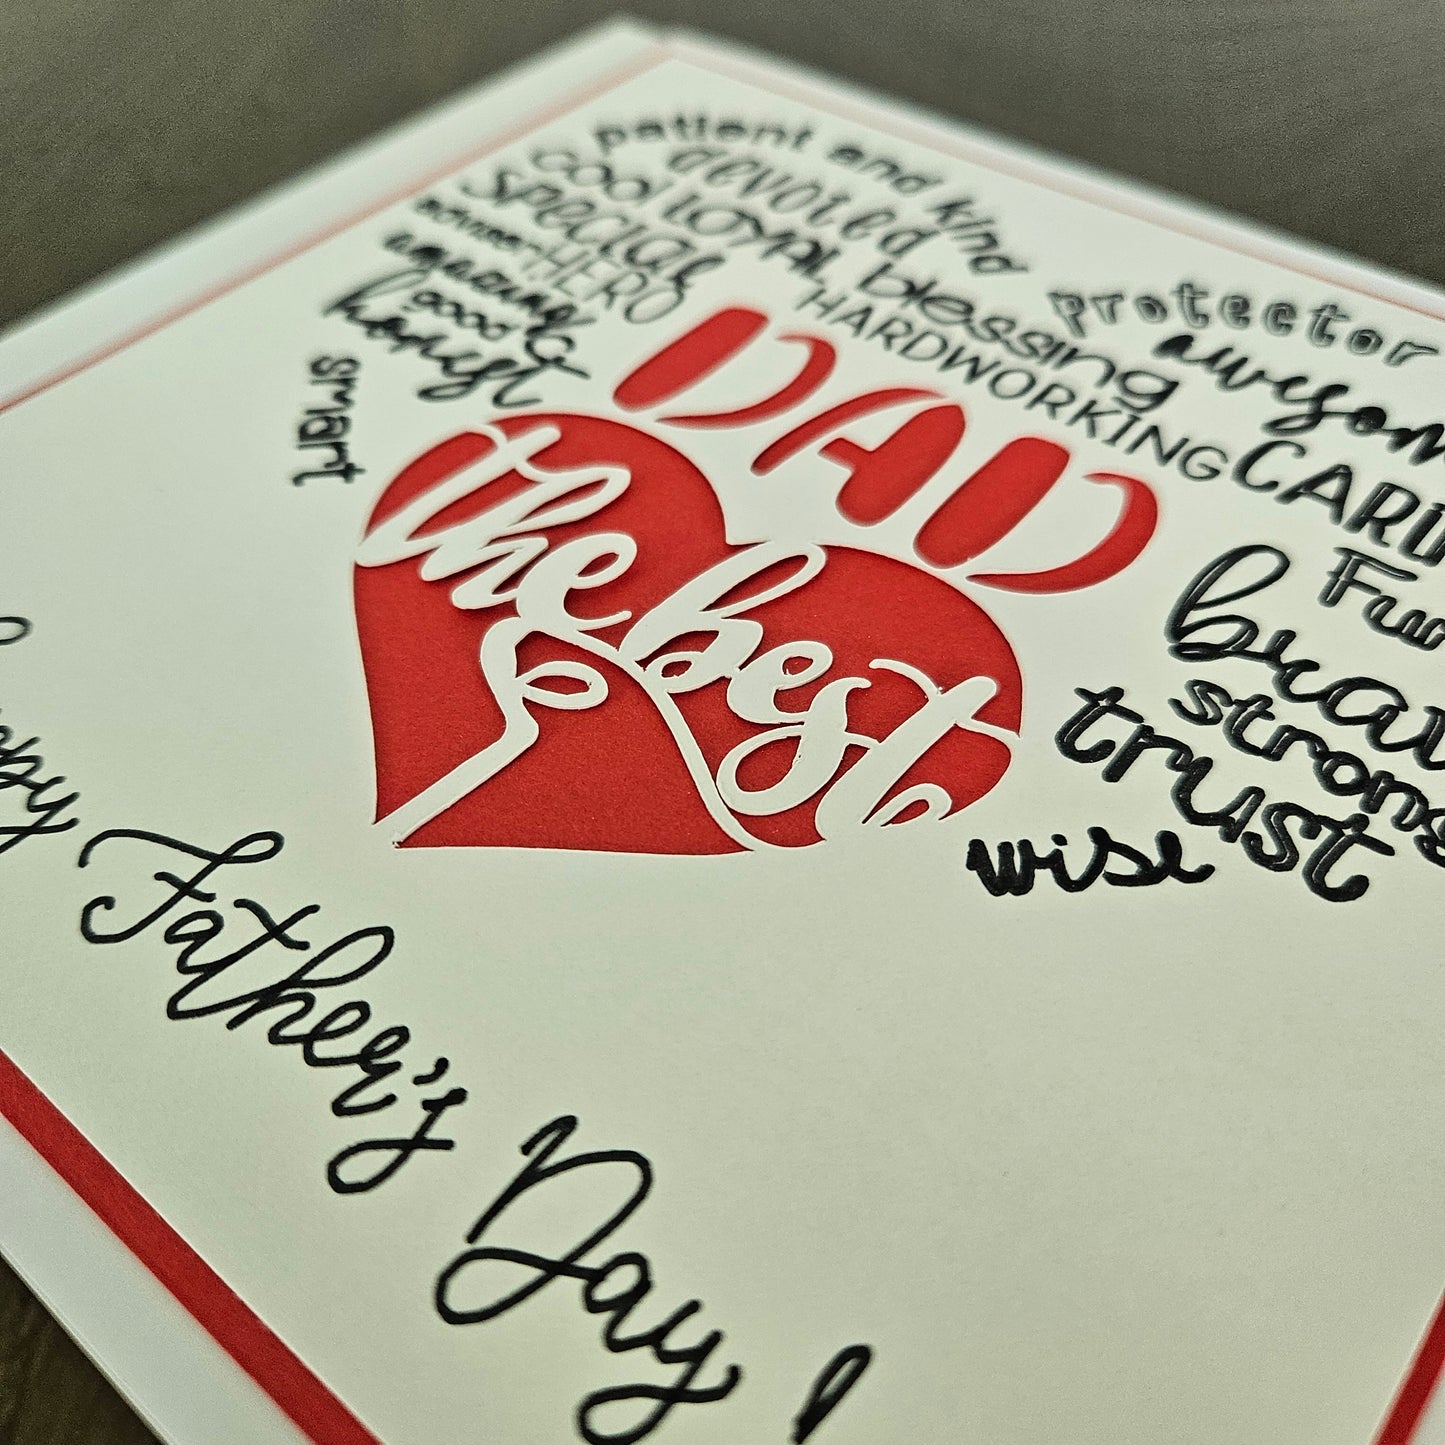 patient and kind
devoted
cool
LOYAL
blessing
special
HERO
HARDWORKING
amazing
good
honest
smart
protector
awesom
CARI
Fu
brav
strong
trust
wise
DAD
the best
Father's Day!